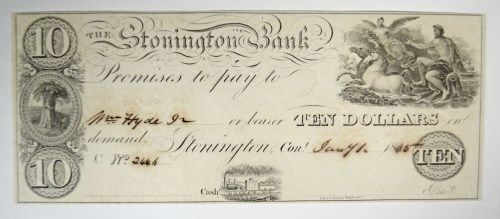 10 THE Stonington Bank
Promises to pay to
Wm Hyde Jr or bearer TEN DOLLARS on
demand. Stonington, Con!
C No 2444
TEN
10 Cash